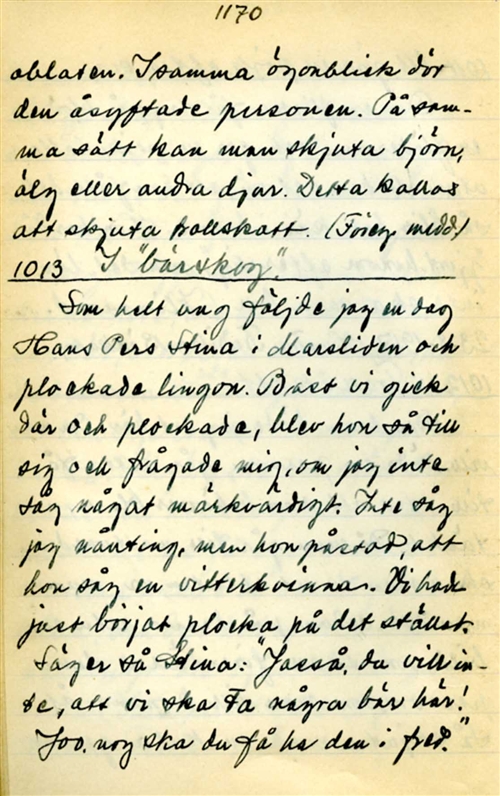 1170
oblaten. I samma ögonblick dör
den åsyftade personen. På sam-
ma sätt kan man skjuta björn,
älg eller andra djur. Detta kallas
att skjuta trollskott. (Föreg. medd.)
1013 I "bärskog".
Som helt ung följde jag en dag
Hans Pers Stina i Marsliden och
plockade lingon. Bäst vi gick
där och plockade, blev hon så till
sig och frågade mig, om jag inte
såg något märkvärdigt. Inte såg
jag nånting, men hon påstod, att
hon såg en vitterkvinna. Vi hade
just börjat plocka på det stället.
Säger så Stina: "Jasså, du vill in-
te, att vi ska ta några bär här!
Joo, nog ska du få ha den i fred."